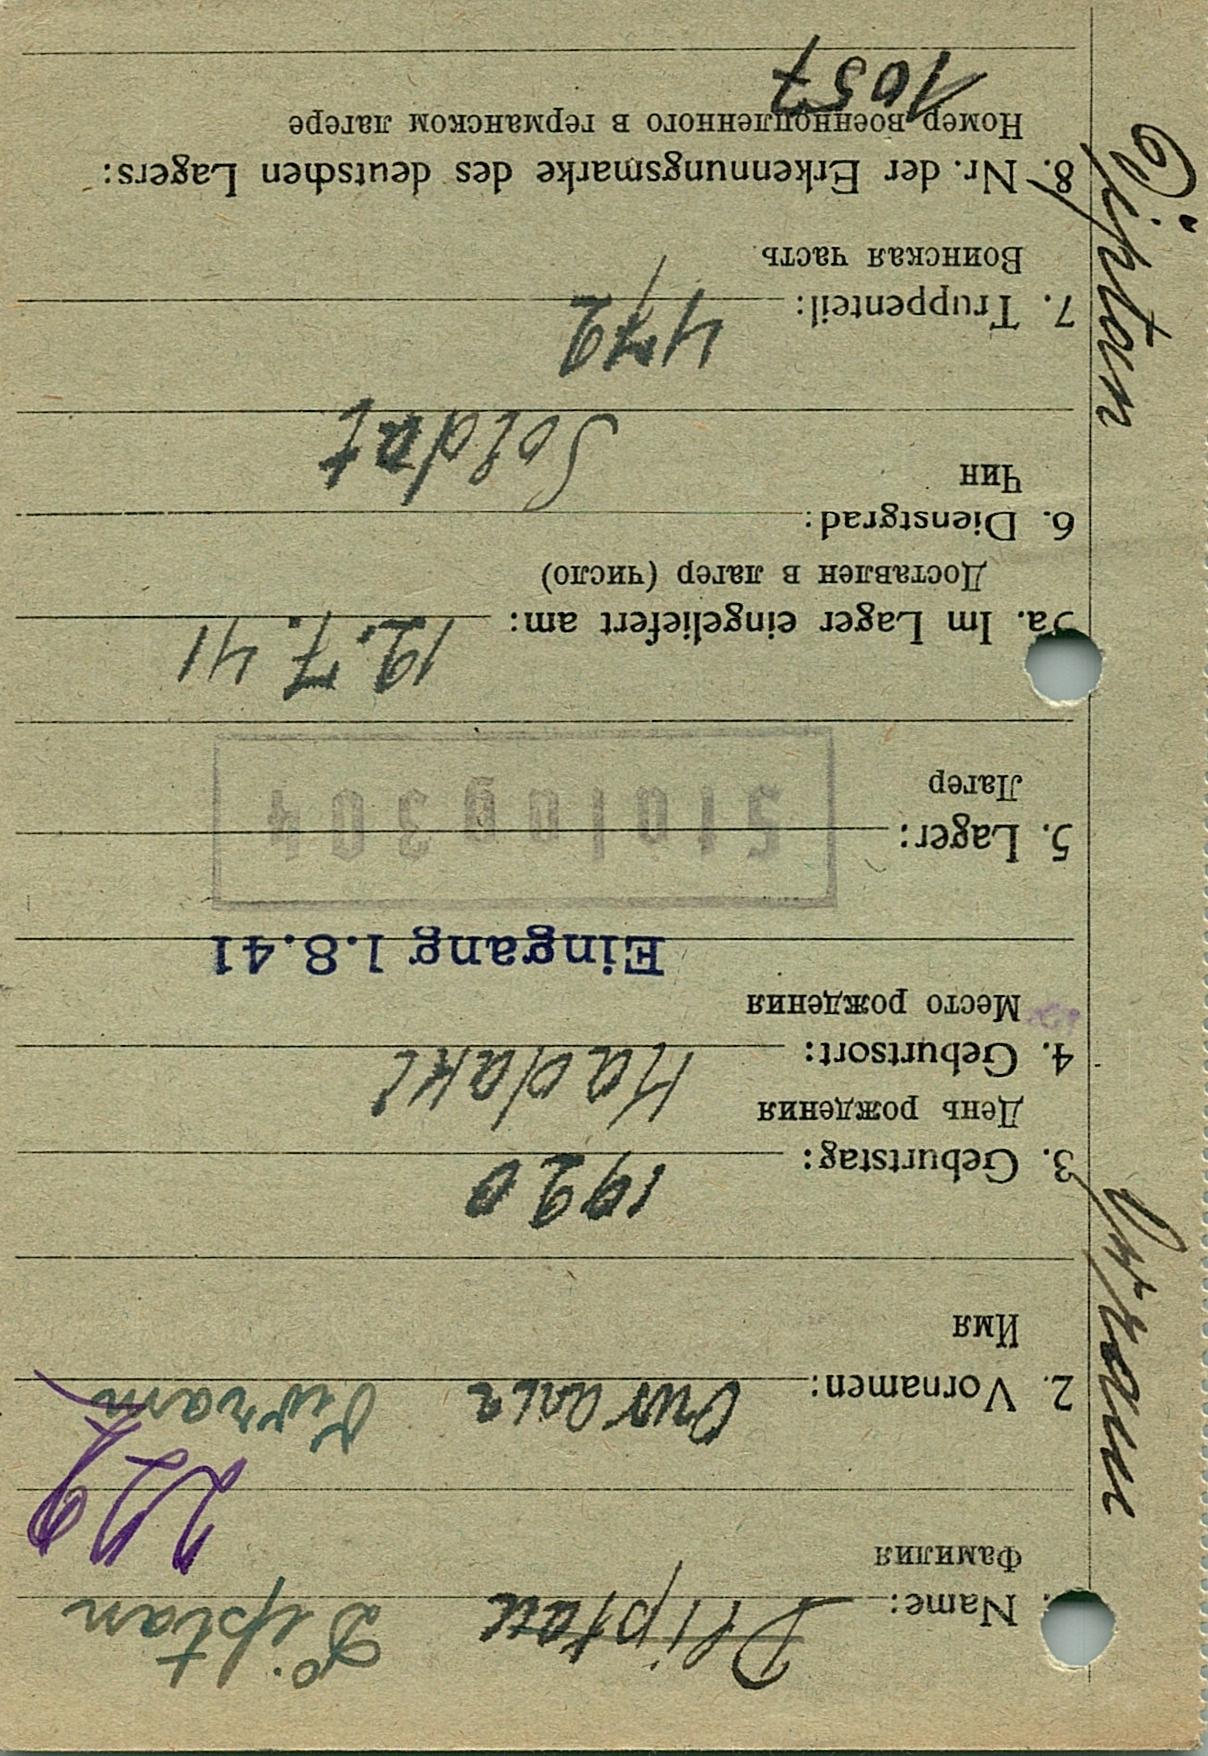 1. Name:
Фамилия
2. Vornamen:
Имя
3. Geburtstag: 1920
День рождения
4. Geburtsort:
Место рождения
Eingang 1.8.41
5. Lager: Stalag 304
Лагер
5a. Im Lager eingeliefert am: 12.7.41
Доставлен в лагер (число)
6. Dienstgrad: Soldat
Чин
7. Truppenteil: 472
Воинская часть
8. Nr. der Erkennungsmarke des deutschen Lagers:
Номер военнопленного в германском лагере
1057